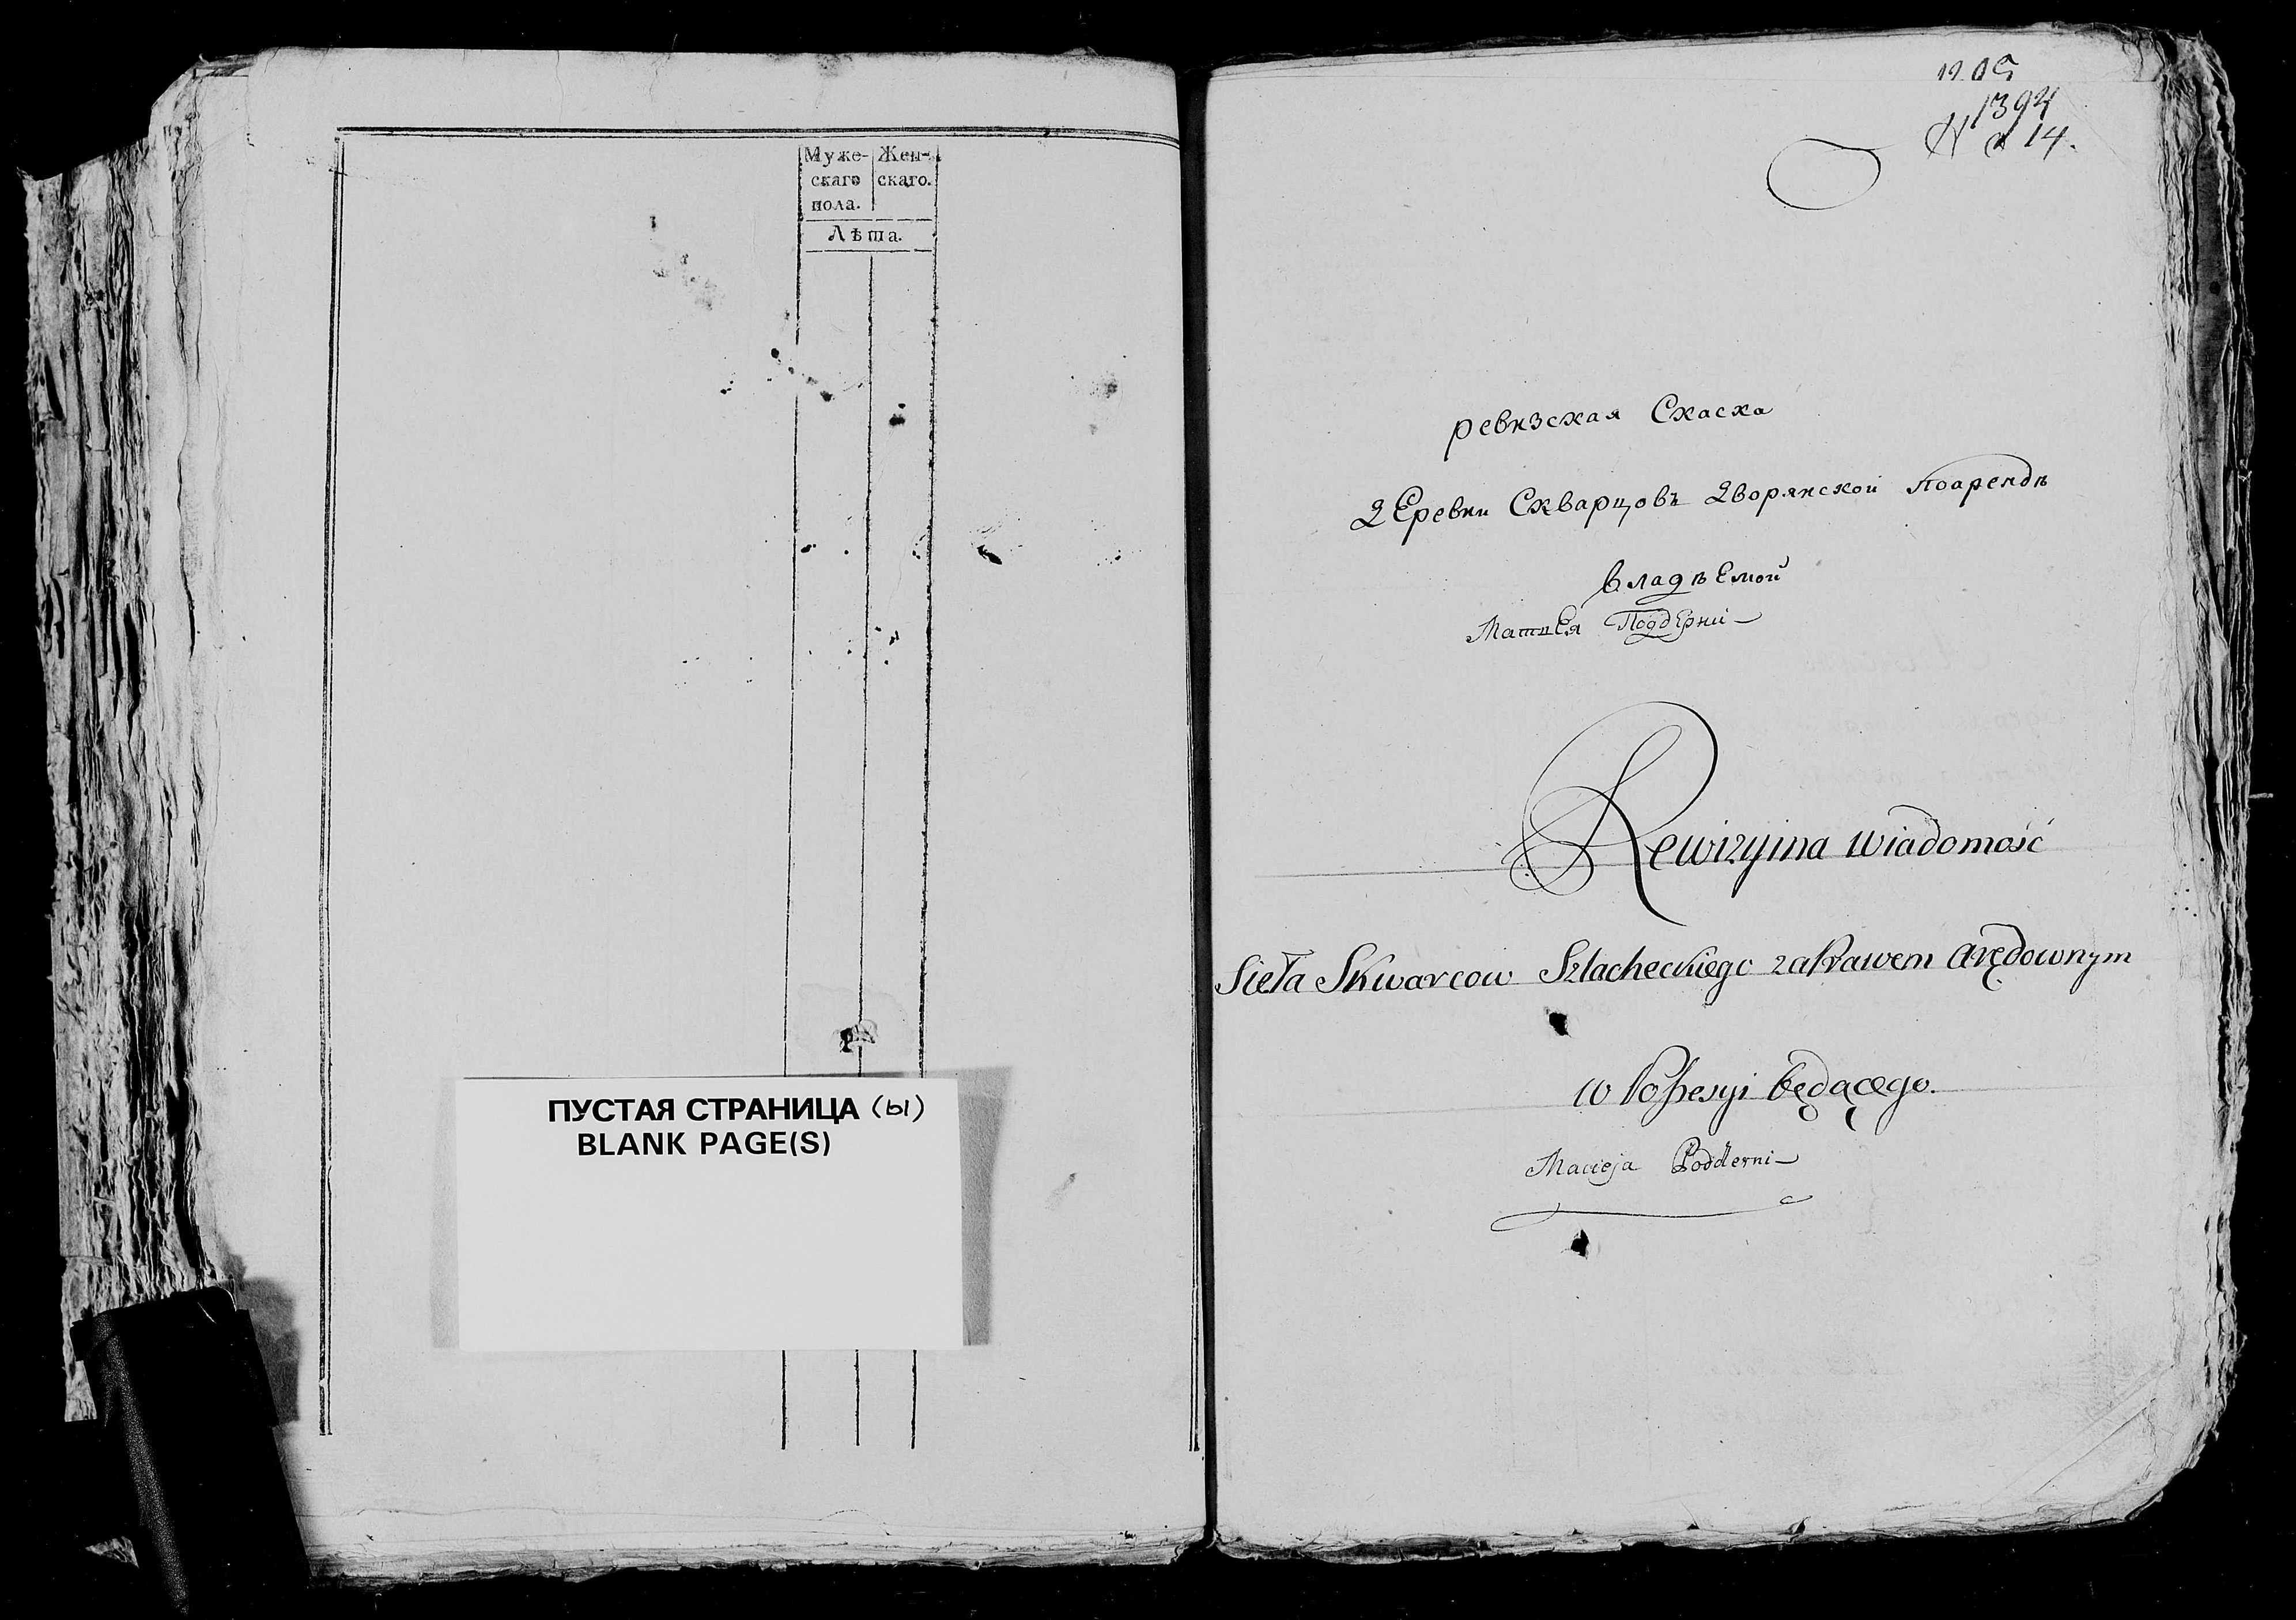 Муже- Жен-
скаго скаго.
пола.
Лѣта.
ПУСТАЯ СТРАНИЦА (ы)
BLANK PAGE(S)
1394
14.
ревизская Скаска
ДЕревни Скварцовъ Дворянской поарендѣ
владѣЕмой
МатцЕя ПоддЕрни
Rewizyina wiadomość
Sieła Skwarcow Szlacheckiego za Prawem Arędownym
w Possesyi będącego.
Macieja Podderni